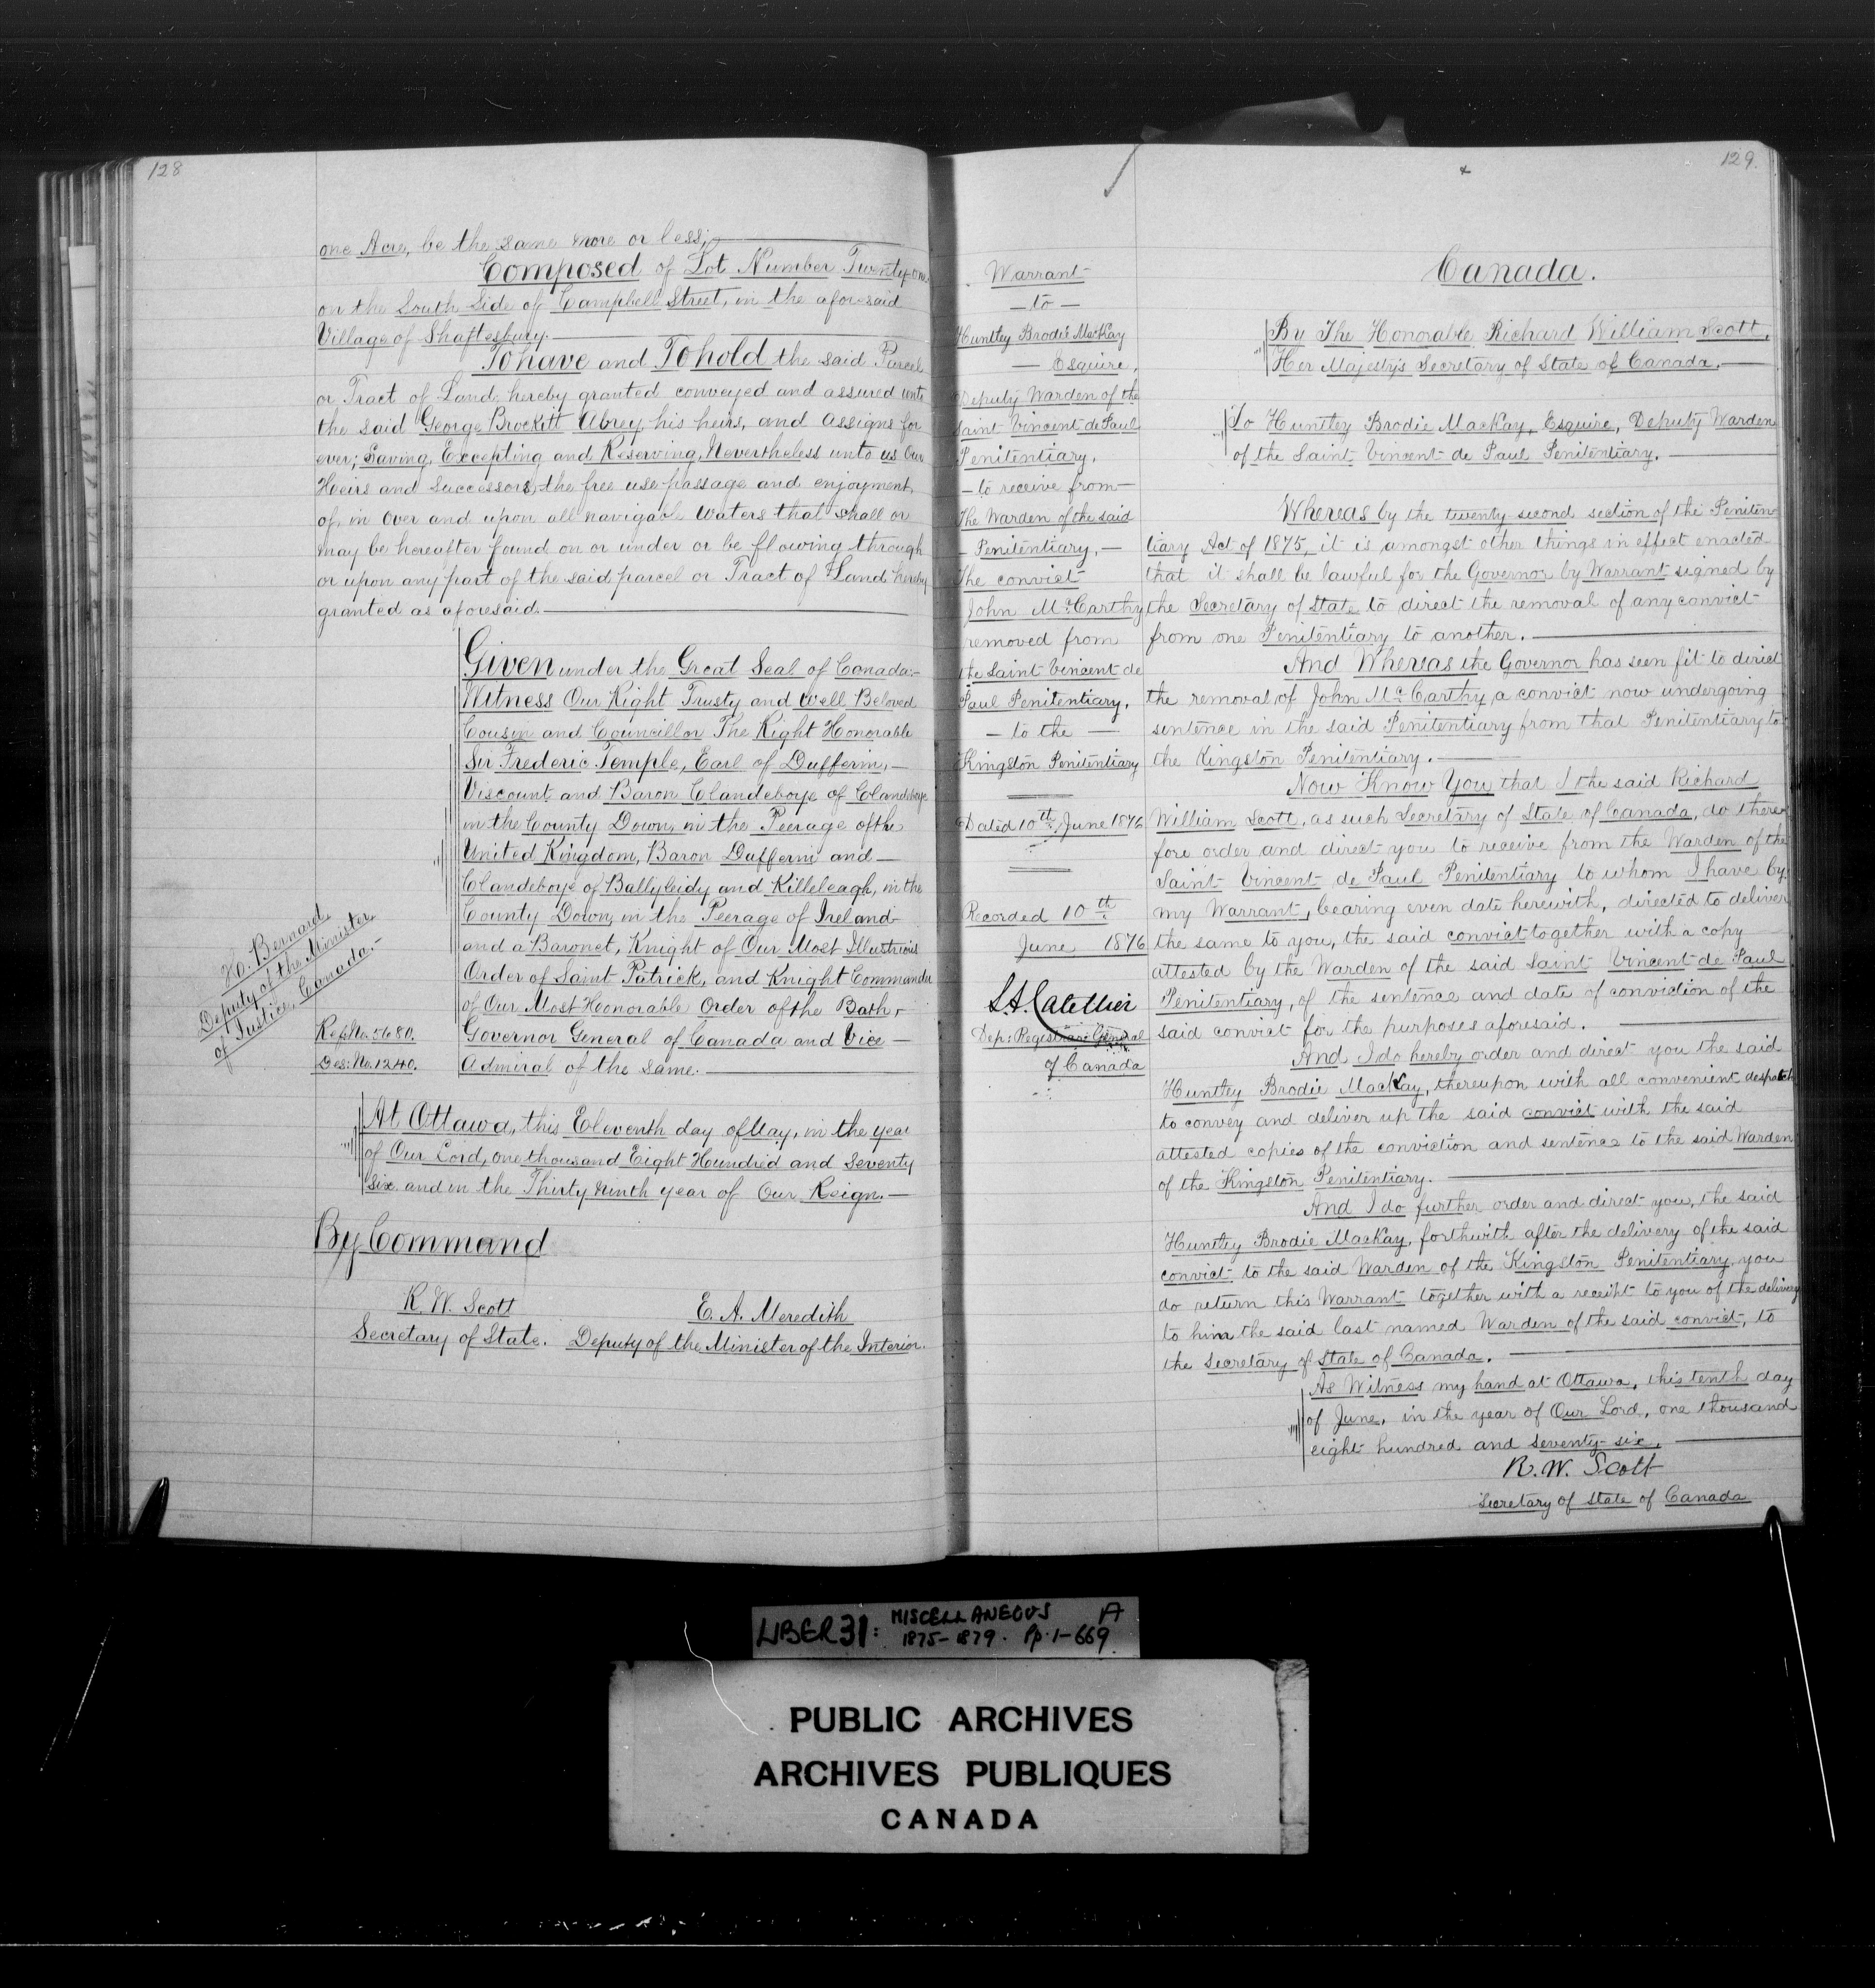 128
one Acre, be the same more or less;
Composed of Lot Number Twenty-one
on the South Side of Campbell Street, in the aforesaid
Village of Shaftesbury.
To have and To hold the said Parcel
or Tract of Land, hereby granted conveyed and assured unto
the said George Brockitt Ubrey, his heirs, and assigns for
ever; Saving, Excepting and Reserving, Nevertheless unto us Our
Heirs and Successors, the free use passage and enjoyment,
of, in over and upon all navigable waters that shall or
may be hereafter found on or under or be flowing through
or upon any part of the said parcel or Tract of Land hereby
granted as aforesaid.
Given under the Great Seal of Canada:-
Witness Our Right Trusty and Well Beloved
Cousin and Councillor The Right Honorable
Sir Frederic Temple, Earl of Dufferin,
Viscount and Baron Clandeboye of Clandeboye
in the County Down, in the Peerage of the
United Kingdom, Baron Dufferin and
Clandeboye of Ballyleidy and Killeleagh, in the
County Down, in the Peerage of Ireland
and a Baronet, Knight of Our Most Illustrious
Order of Saint Patrick, and Knight Commander
of Our Most Honorable Order of the Bath,
Governor General of Canada and Vice
Admiral of the same.
H. Bernard,
Deputy of the Minister
of Justice, Canada.
Ref. No. 5680.
Des: No. 1240.
At Ottawa, this Eleventh day of May, in the year
of Our Lord, one thousand Eight Hundred and Seventy
Six and in the Thirty Ninth year of Our Reign.
By Command
R. W. Scott
Secretary of State.
E. A. Meredith
Deputy of the Minister of the Interior.
129.
Warrant
to
Huntley Brodie MacKay
Esquire,
Deputy Warden of the
Saint Vincent de Paul
Penitentiary,
to receive from
The Warden of the said
Penitentiary,
The convict
John McCarthy
removed from
the Saint Vincent de
Paul Penitentiary,
to the
Kingston Penitentiary
Dated 10th June 1876
Recorded 10th
June 1876
L.A. Catellier
Dep: Registrar General
of Canada
Canada.
By The Honorable Richard William Scott,
Her Majesty's Secretary of State of Canada.
To Huntley Brodie MacKay, Esquire, Deputy Warden
of the Saint Vincent de Paul Penitentiary.
Whereas by the twenty second section of the Peniten
tiary Act of 1875, it is amongst other things in effect enacted
that it shall be lawful for the Governor by Warrant signed by
the Secretary of State to direct the removal of any convict
from one Penitentiary to another.
And Whereas the Governor has seen fit to direct
the removal of John McCarthy a convict now undergoing
sentence in the said Penitentiary from that Penitentiary to
the Kingston Penitentiary.
Now Know You that I the said Richard
William Scott, as such Secretary of State of Canada, do there
fore order and direct you to receive from the Warden of the
Saint Vincent de Paul Penitentiary to whom I have by
my Warrant, bearing even date herewith, directed to deliver
the same to you, the said convict together with a copy
attested by the Warden of the said Saint Vincent de Paul
Penitentiary, of the sentence and date of conviction of the
said convict for the purposes aforesaid.
And I do hereby order and direct you the said
Huntley Brodie MacKay, thereupon with all convenient despatch
to convey and deliver up the said convict with the said
attested copies of the conviction and sentence to the said Warden
of the Kingston Penitentiary.
And I do further order and direct you, the said
Huntley Brodie MacKay, forthwith after the delivery of the said
convict to the said Warden of the Kingston Penitentiary, you
do return this Warrant together with a receipt to you of the delivery
to him the said last named Warden of the said convict, to
the Secretary of State of Canada.
As Witness my hand at Ottawa, this tenth day
of June, in the year of Our Lord, one thousand
eight hundred and seventy-six.
R. W. Scott
Secretary of State of Canada
LIBER 31: MISCELLANEOUS A
1875-1879. Pp. 1-669
PUBLIC ARCHIVES
ARCHIVES PUBLIQUES
CANADA